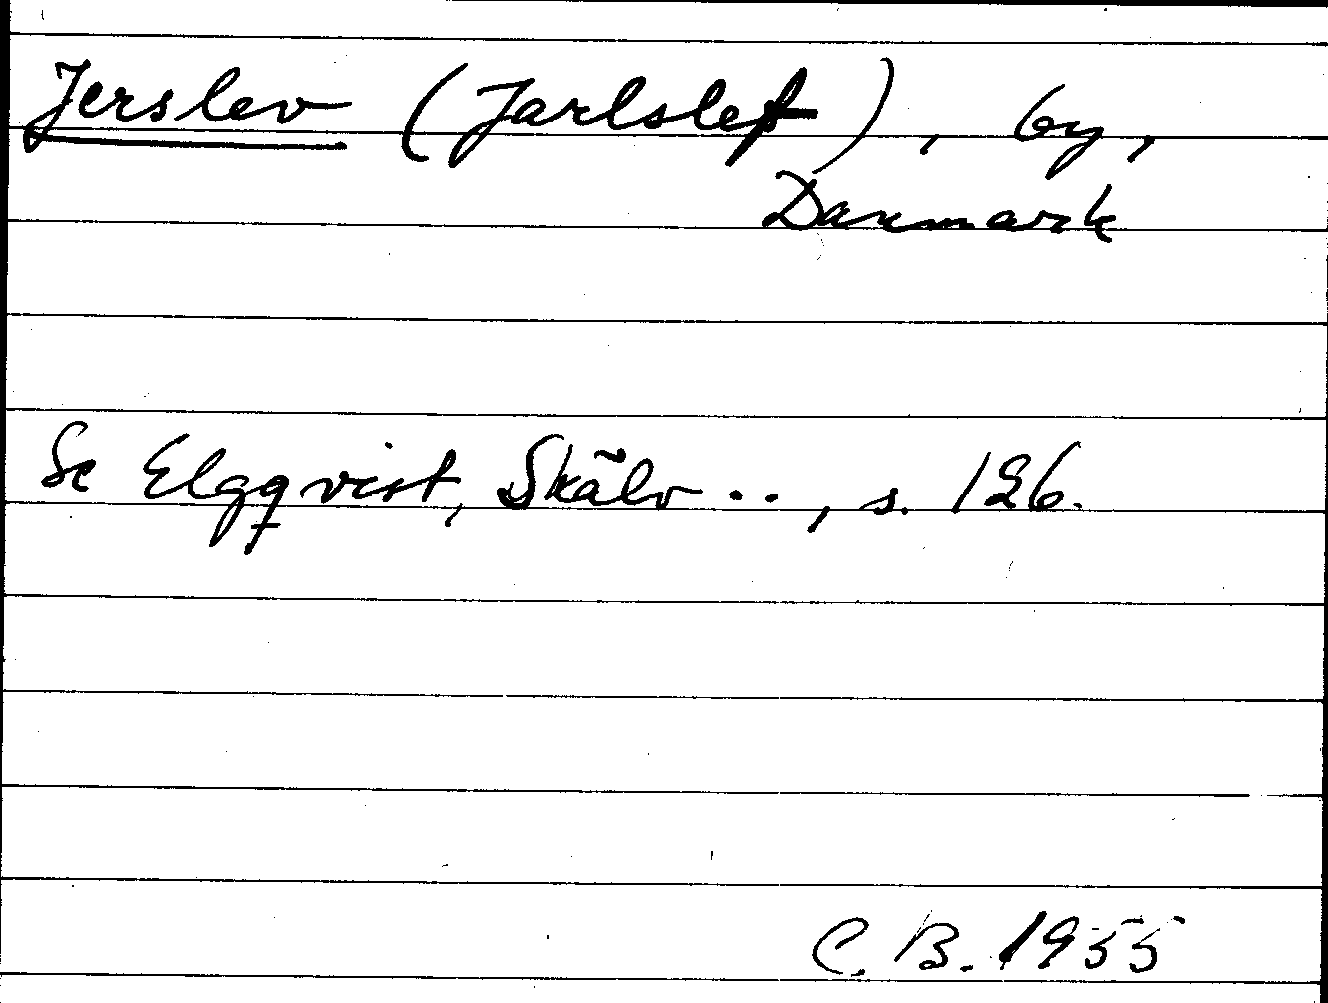 Jerslev (Jarlslef), by,
Danmark
Se Elgqvist, Skälv . . , s. 126.
C. B. 1955